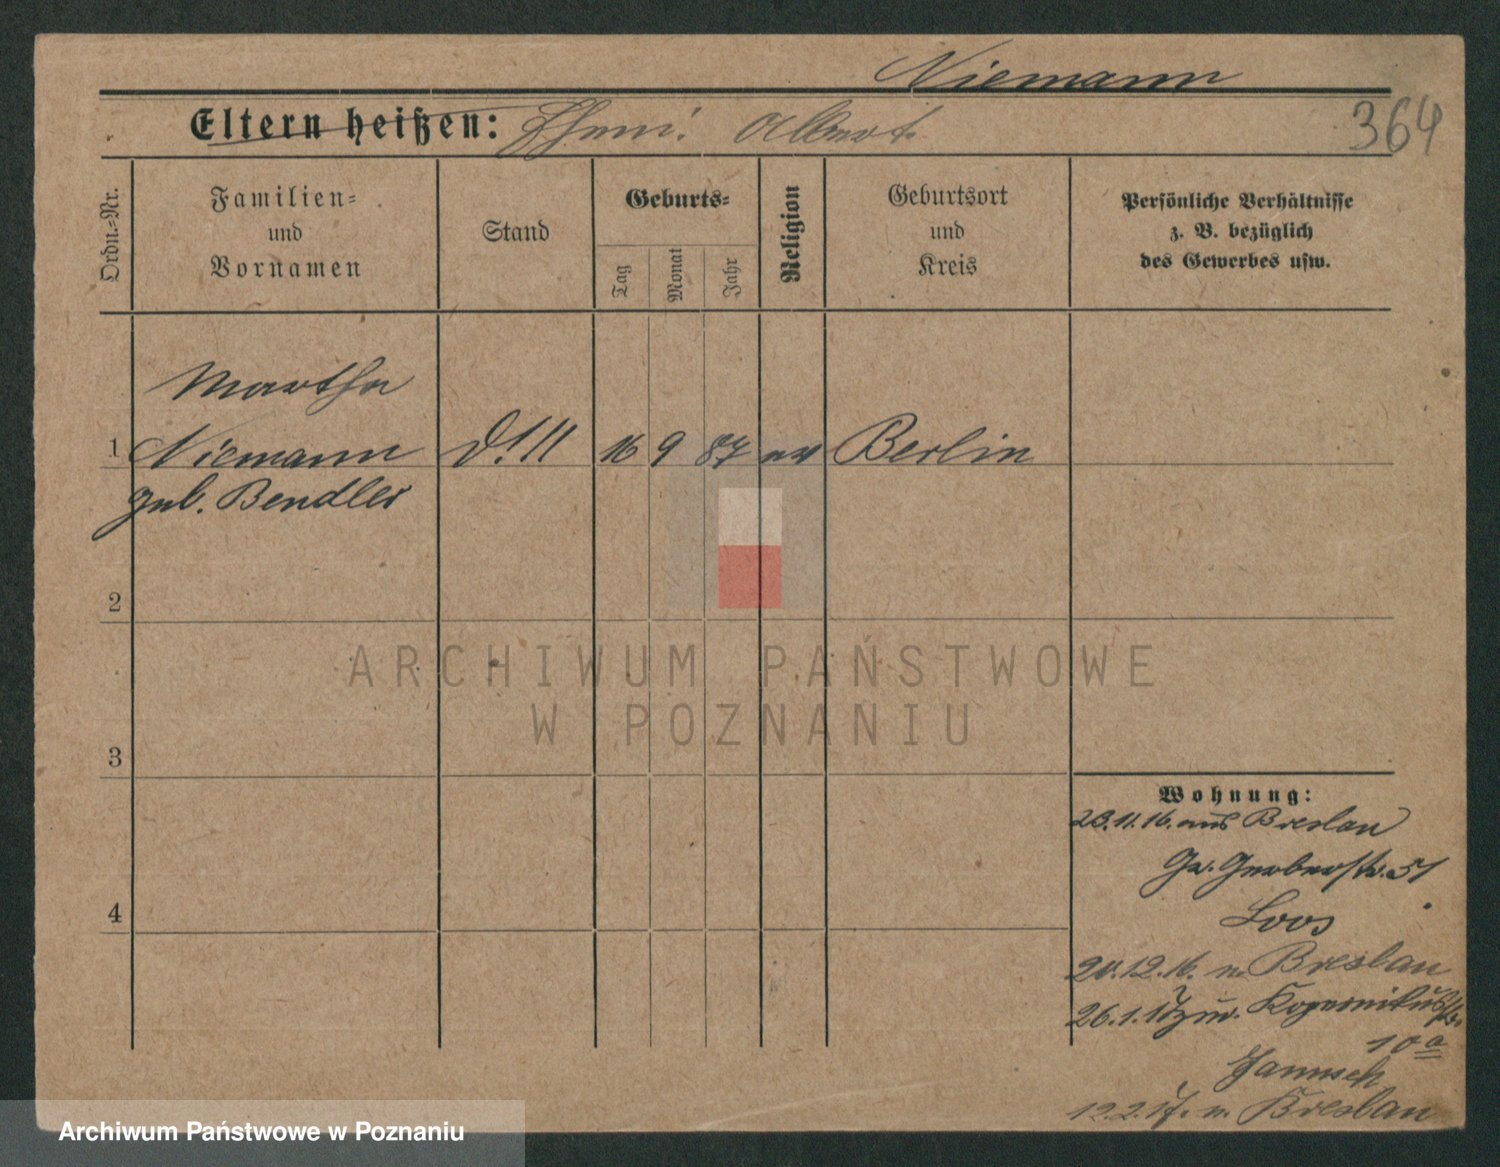 Niemann
Eltern heißen: Albert
364
Ordn.-Nr.
Familien-
und
Vornamen
Stand
Geburts-
Tag
Monat
Jahr
Religion
Geburtsort
und
Kreis
Persönliche Verhältnisse
z. B. bezüglich
des Gewerbes usw.
Martha
1 Niemann 16 9 87 ev Berlin
geb. Bendler
2
ARCHIWUM PAŃSTWOWE
W POZNANIU
3
Wohnung:
23.11.16. aus Breslau
Gr. Gerberstr. 51
Loos
20.12.16. n. Breslau
26.1.17 zur. Kopernikusstr.
10a
Jannsch
12.2.17. n. Breslau
4
Archiwum Państwowe w Poznaniu